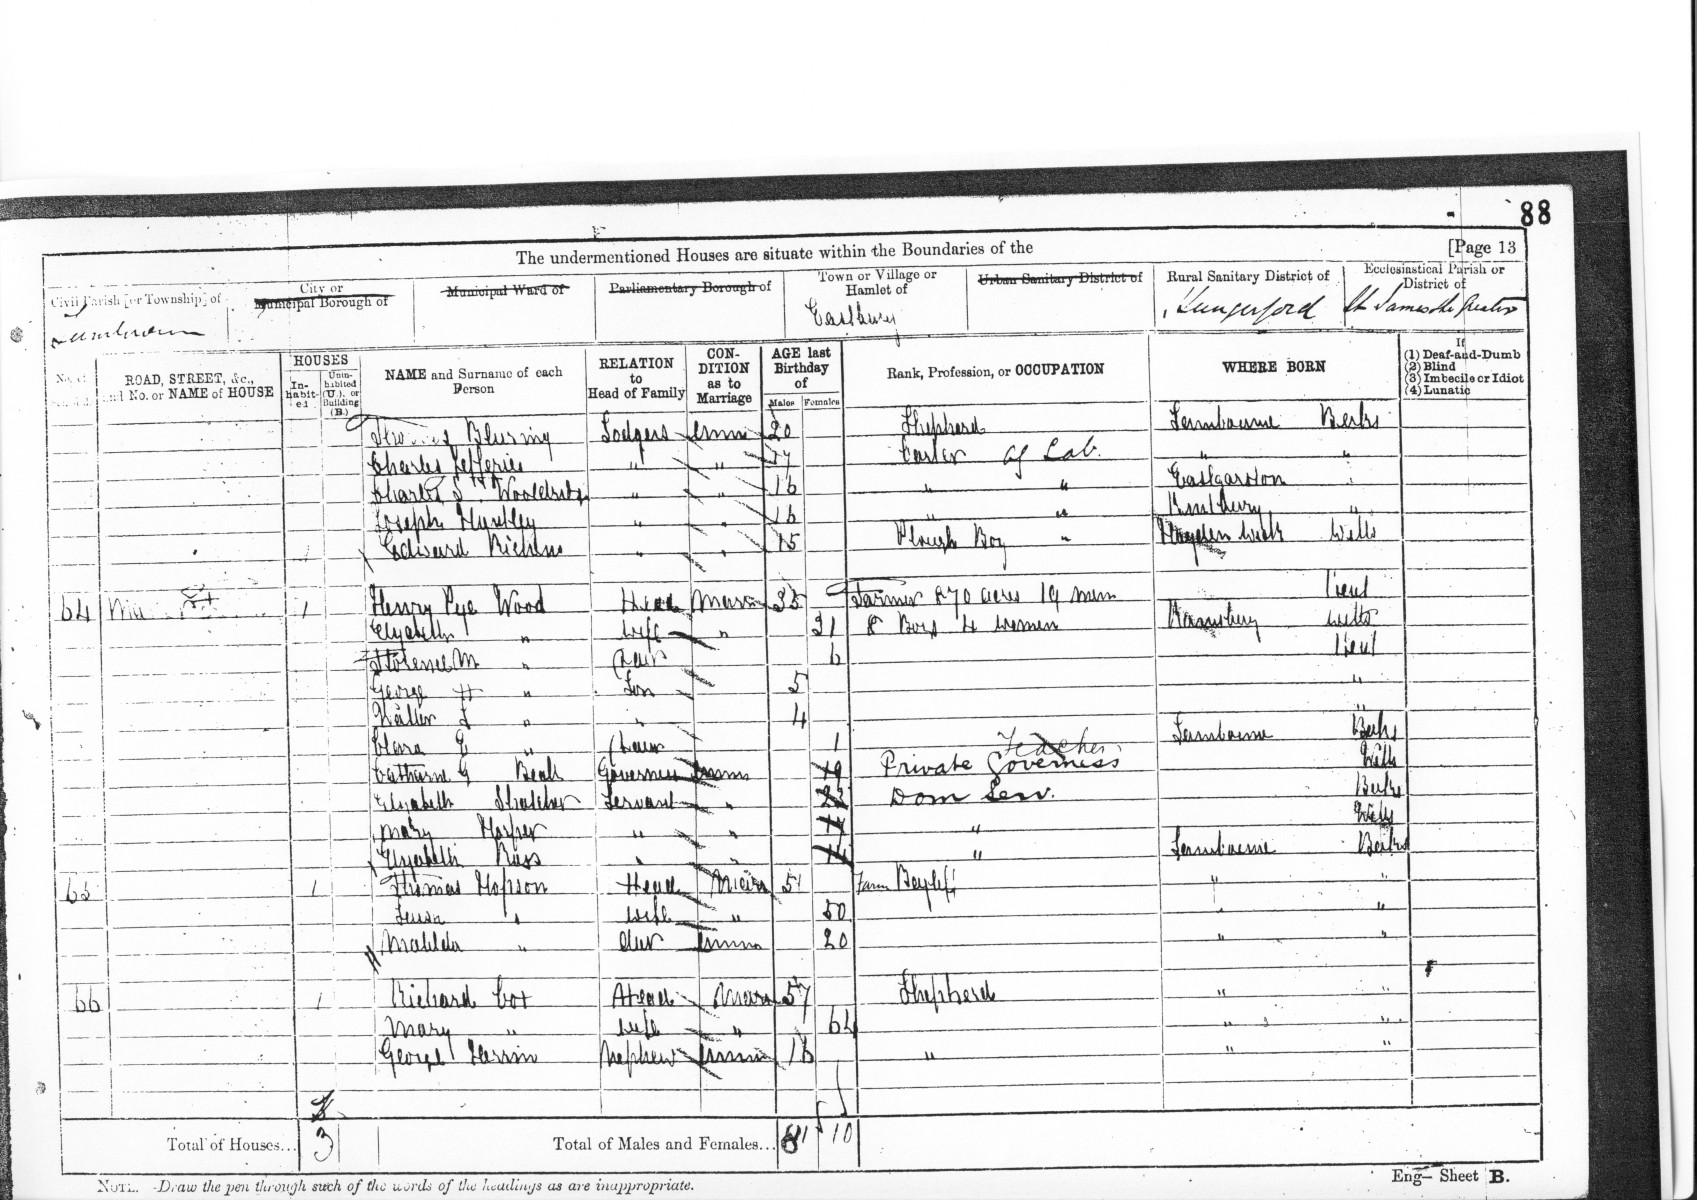 88
The undermentioned Houses are situate within the Boundaries of the [Page 13
Civil Parish [or Township] of City or Municipal Borough of Municipal Ward of Parliamentary Borough of Town or Village or Hamlet of Urban Sanitary District of Rural Sanitary District of Ecclesiastical Parish or District of
Eastbury Hungerford St James the Greater
ROAD, STREET, &c., and No. or NAME of HOUSE HOUSES In-habit-ed Unin-habited (U.), or Building (B.) NAME and Surname of each Person RELATION to Head of Family CON-DITION as to Marriage AGE last Birthday of Males Females Rank, Profession, or OCCUPATION WHERE BORN If (1) Deaf-and-Dumb (2) Blind (3) Imbecile or Idiot (4) Lunatic
Lodgers Unm 20 Shepherd Lambourne Berks
Charles Jefferies " " 17 Carter Ag Lab. " "
Charles S. " " 16 " " Eastgarston "
Joseph Huntley " " 16 " " Kintbury "
Edward " " 15 Plough Boy " Wilts
64 1 Henry Pye Wood Head Mar 35 Farmer 870 acres 19 men
Elizabeth " Wife " 31 8 Boys 4 women Ramsbury Wilts
Florence M " Daur 6
George H " Son 5 "
Walter " " 4 "
Clara " Daur 1 Lambourne Berks
Teacher
Catharine G Beak Governess Unm 19 Private Governess Wilts
Elizabeth Servant " 23 Dom Serv. Berks
Mary Harper " " 17 " Wilts
Elizabeth Bass " " 14 " Lambourne Berks
65 1 Thomas Hopson Head Mar 51 Farm " "
" Wife " 50 " "
Matilda " Daur Unm 20 " "
66 1 Richard Cox Head Mar 57 Shepherd " "
Mary " Wife " 64 " "
George Nephew Unm 16 " " "
Total of Houses... 3 Total of Males and Females... 11 10
NOTE.—Draw the pen through such of the words of the headings as are inappropriate. Eng— Sheet B.